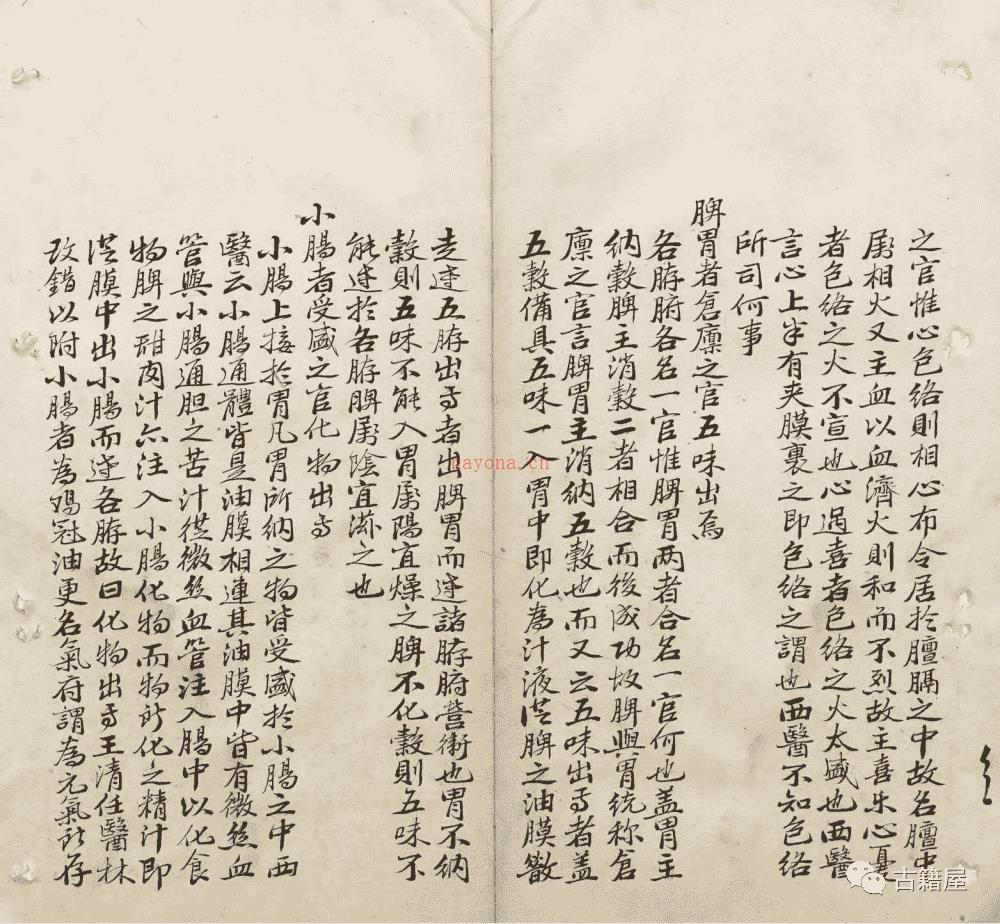 之官惟心色络則相心布令居於膻膈之中故名膻中
屬相火又主血以血濟火則和而不烈故主喜乐心憂
者色络之火不宣也心過喜者色络之火太盛也西醫
言心上半有夹膜裹之即色络之謂也西醫不知色络
所司何事
脾胃者倉廪之官五味出焉
各臓腑各名一官惟脾胃两者合名一官何也盖胃主
纳穀脾主消穀二者相合而後成功故脾與胃统称倉
廪之官言脾胃主消纳五穀也而又云五味出焉者盖
五穀備具五味一入胃中即化為汁液從脾之油膜散
走達五臓出焉者出脾胃而達諸臓腑营衛也胃不纳
穀則五味不能入胃屬陽宜燥之脾不化穀則五味不
能達於各臓脾屬陰宜滋之也
小腸者受盛之官化物出焉
小腸上接於胃凡胃所纳之物皆受盛於小腸之中西
醫云小腸通體皆是油膜相連其油膜中皆有微丝血
管與小腸通胆之苦汁從微丝血管注入腸中以化食
物脾之甜肉汁亦注入小腸化物而物所化之精汁即
從膜中出小腸而達各臓故曰化物出焉王清任醫林
改錯以附小腸者為鷄冠油更名氣府謂為元氣所存
nayona.cn
古籍屋